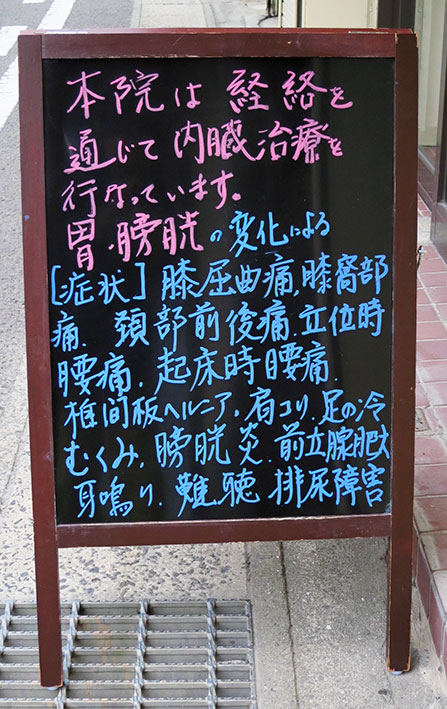 本院は経絡を
通じて内臓治療を
行なっています。
胃.膀胱の変化による
[症状]膝屈曲痛,膝窩部
痛.頚部前後痛.立位時
腰痛.起床時腰痛.
椎間板ヘルニア.肩コリ.足の冷
むくみ.膀胱炎.前立腺肥大
耳鳴り.難聴.排尿障害